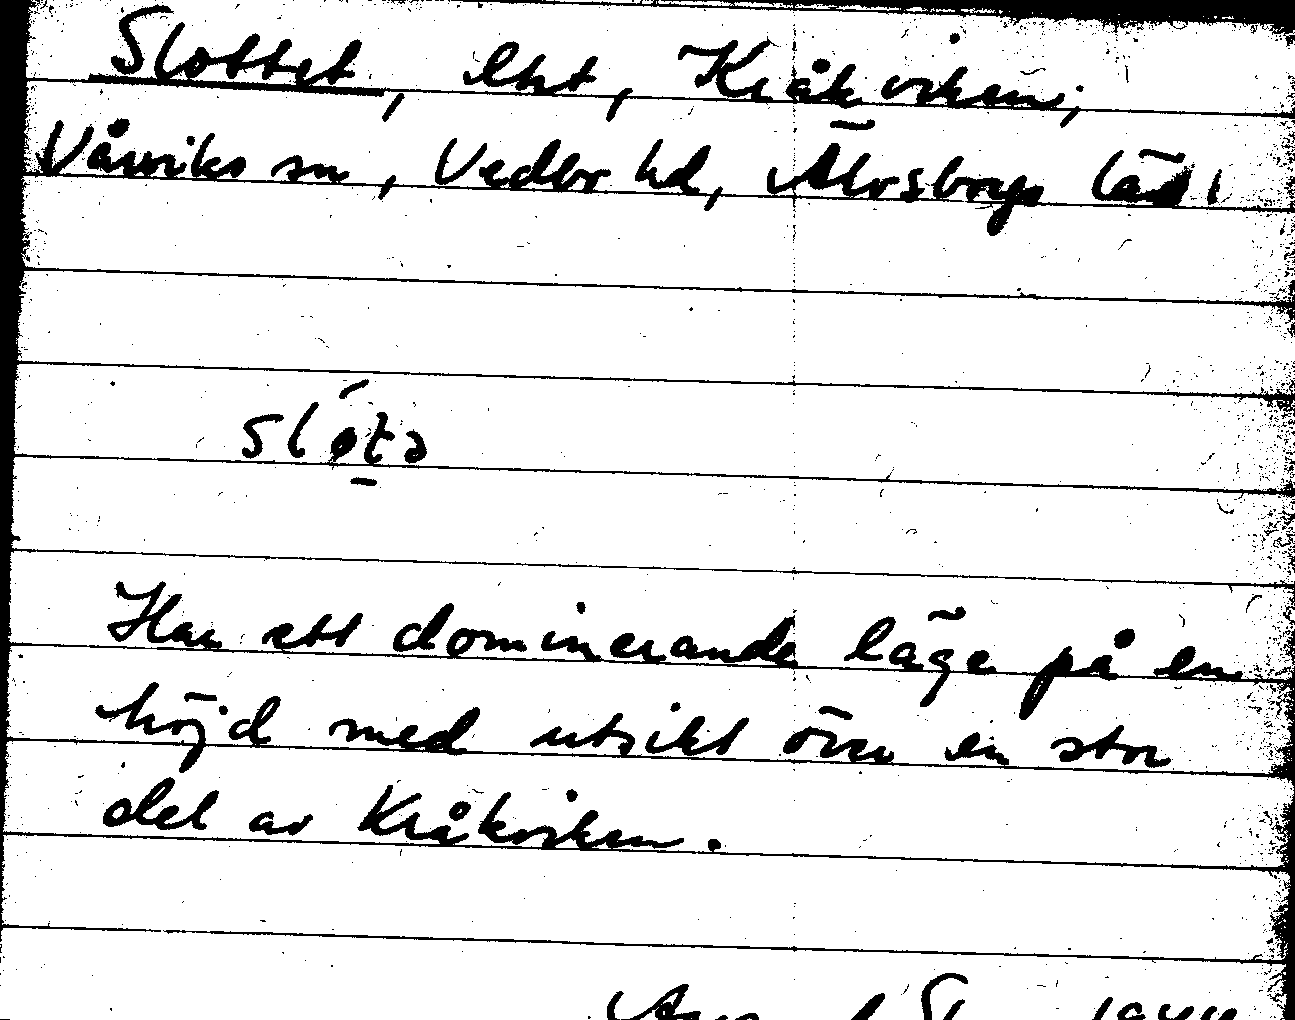 Slottet, lht, Kråkviken,
Vårviks sn, Vedbo hd, Älvsborgs län
slǿtə
Har ett dominerande läge på en
höjd med utsikt över en stor
del av Kråkviken.